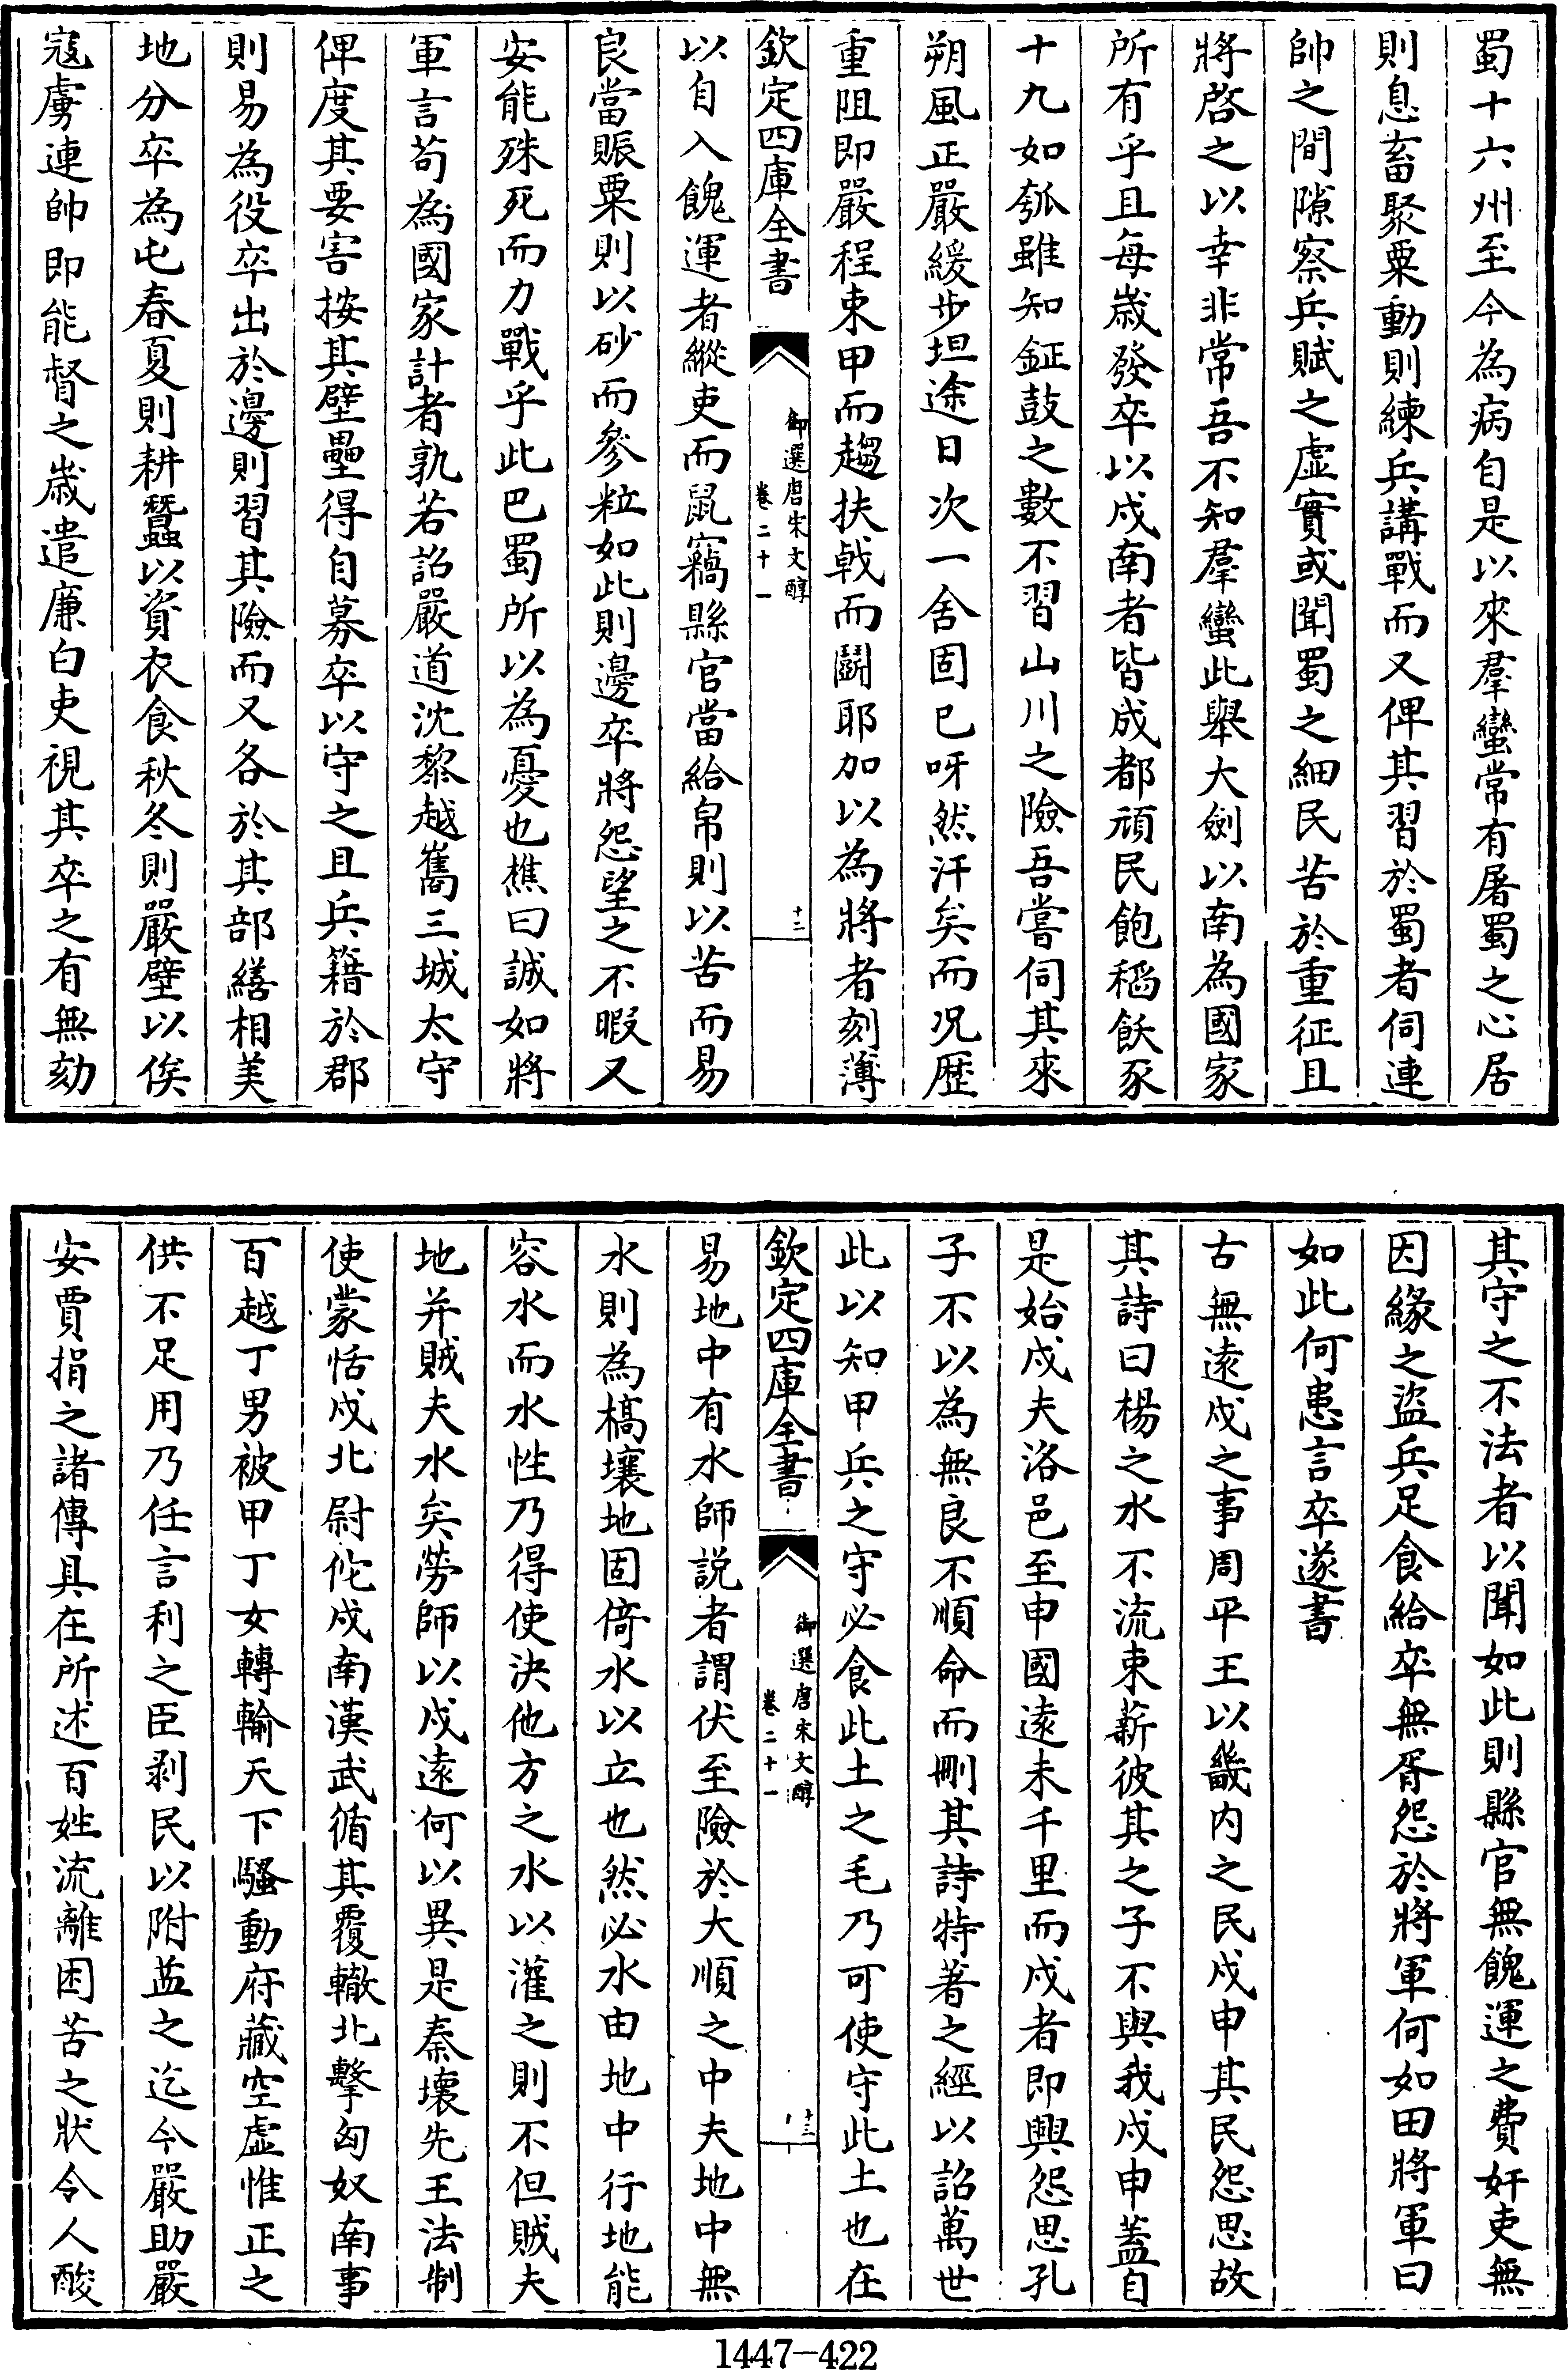 蜀十六州至今為病自是以來羣蠻常有屠蜀之心居
則息畜聚粟動則練兵講戰而又俾其習於蜀者伺連
帥之間隙察兵賦之虛實或聞蜀之細民苦於重征且
將啓之以幸非常吾不知羣蠻此舉大劍以南為國家
所有乎且每歲發卒以戍南者皆成都頑民飽稻飫豕
十九如瓠雖知鉦鼓之數不習山川之險吾嘗伺其來
朔風正嚴緩步坦途日次一舍固已呀然汗矣而況歷
重阻即嚴程束甲而趨扶戟而鬭耶加以為將者刻薄
欽定四庫全書
御選唐宋文醇
卷二十一
十二
以自入餽運者縱吏而鼠竊縣官當給帛則以苦而易
良當賑粟則以砂而參粒如此則邊卒將怨望之不暇又
安能殊死而力戰乎此巴蜀所以為憂也樵曰誠如將
軍言苟為國家計者孰若詔嚴道沈黎越巂三城太守
俾度其要害按其壁壘得自募卒以守之且兵籍於郡
則易為役卒出於邊則習其險而又各於其部繕相美
地分卒為屯春夏則耕蠶以資衣食秋冬則嚴壁以俟
寇虜連帥即能督之歲遣廉白吏視其卒之有無劾
其守之不法者以聞如此則縣官無餽運之費奸吏無
因緣之盜兵足食給卒無胥怨於將軍何如田將軍曰
如此何患言卒遂書
古無遠戍之事周平王以畿内之民戍申其民怨思故
其詩曰楊之水不流束薪彼其之子不與我戍申蓋自
是始戍夫洛邑至申國遠未千里而戍者即興怨思孔
子不以為無良不順命而刪其詩特著之經以詔萬世
此以知甲兵之守必食此土之毛乃可使守此土也在
欽定四庫全書
御選唐宋文醇
卷二十一
十三
易地中有水師説者謂伏至險於大順之中夫地中無
水則為槁壤地固倚水以立也然必水由地中行地能
容水而水性乃得使決他方之水以灌之則不但賊夫
地并賊夫水矣勞師以戍遠何以異是秦壞先王法制
使蒙恬戍北尉佗戍南漢武循其覆轍北擊匈奴南事
百越丁男被甲丁女轉輸天下騷動府藏空虛惟正之
供不足用乃任言利之臣剥民以附益之迄今嚴助嚴
安賈捐之諸傳具在所述百姓流離困苦之狀令人酸
1447-422